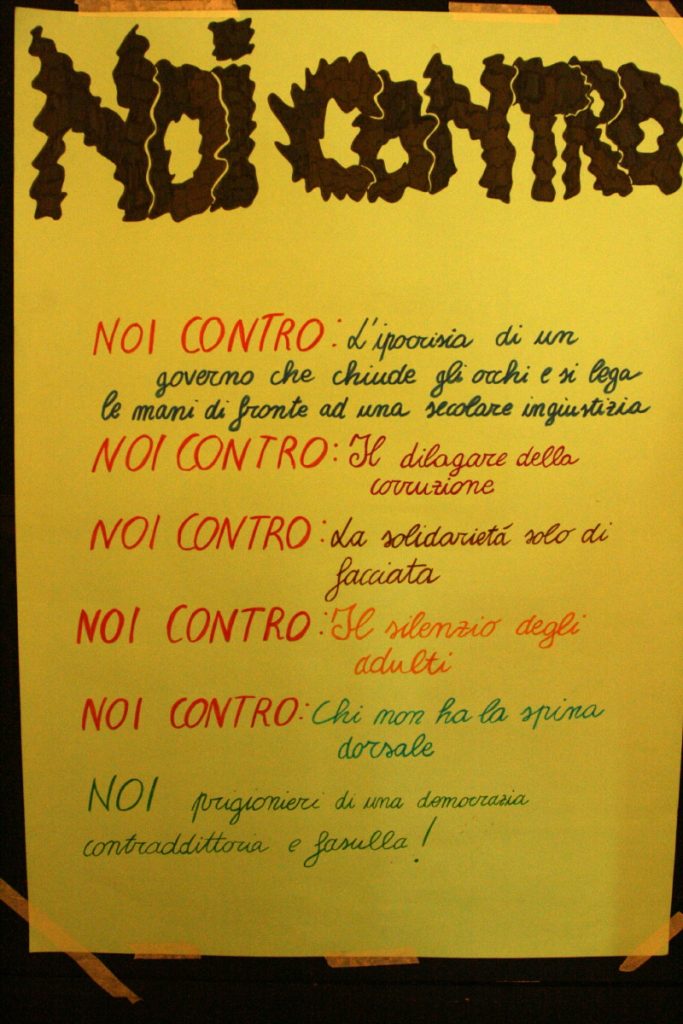 NOI CONTRO
NOI CONTRO: L'ipocrisia di un
governo che chiude gli occhi e si lega
le mani di fronte ad una secolare ingiustizia
NOI CONTRO: Il dilagare della
corruzione
NOI CONTRO: La solidarietá solo di
facciata
NOI CONTRO: Il silenzio degli
adulti
NOI CONTRO: Chi non ha la spina
dorsale
NOI prigionieri di una democrazia
contraddittoria e fasulla!